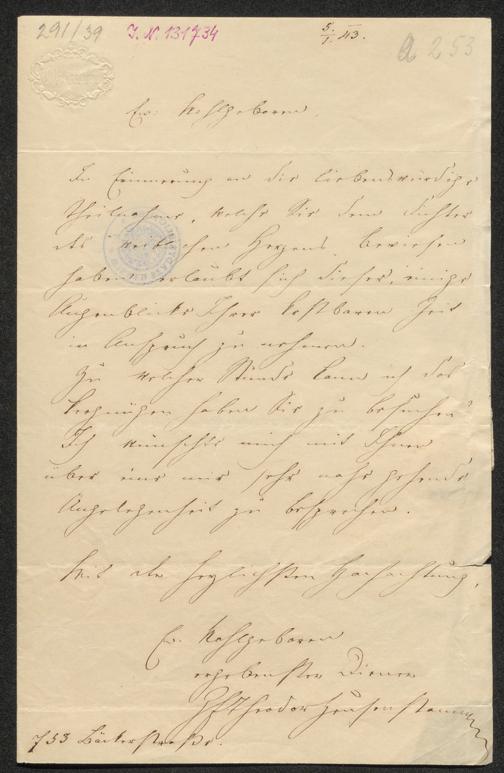 291/39 I.N. 131734 5./1. 43. a 253
Ew: Wohlgeboren,
In Erinnerung an die liebenswürdige
Theilnahme, welche Sie dem Dichter
des weiblichen Herzens bewiesen
haben erlaubt sich dieser, einige
Augenblicke Ihrer kostbaren Zeit
in Anspruch zu nehmen.
Zu welcher Stunde kann ich das
Vergnügen haben Sie zu besuchen?
Ich wünschte mich mit Ihnen
über eine mir sehr nahe gehende
Angelegenheit zu besprechen.
Mit der herzlichsten Hochachtung,
Ew. Wohlgeboren
ergebenster Diener
Theodor
753 Bäckerstraße.